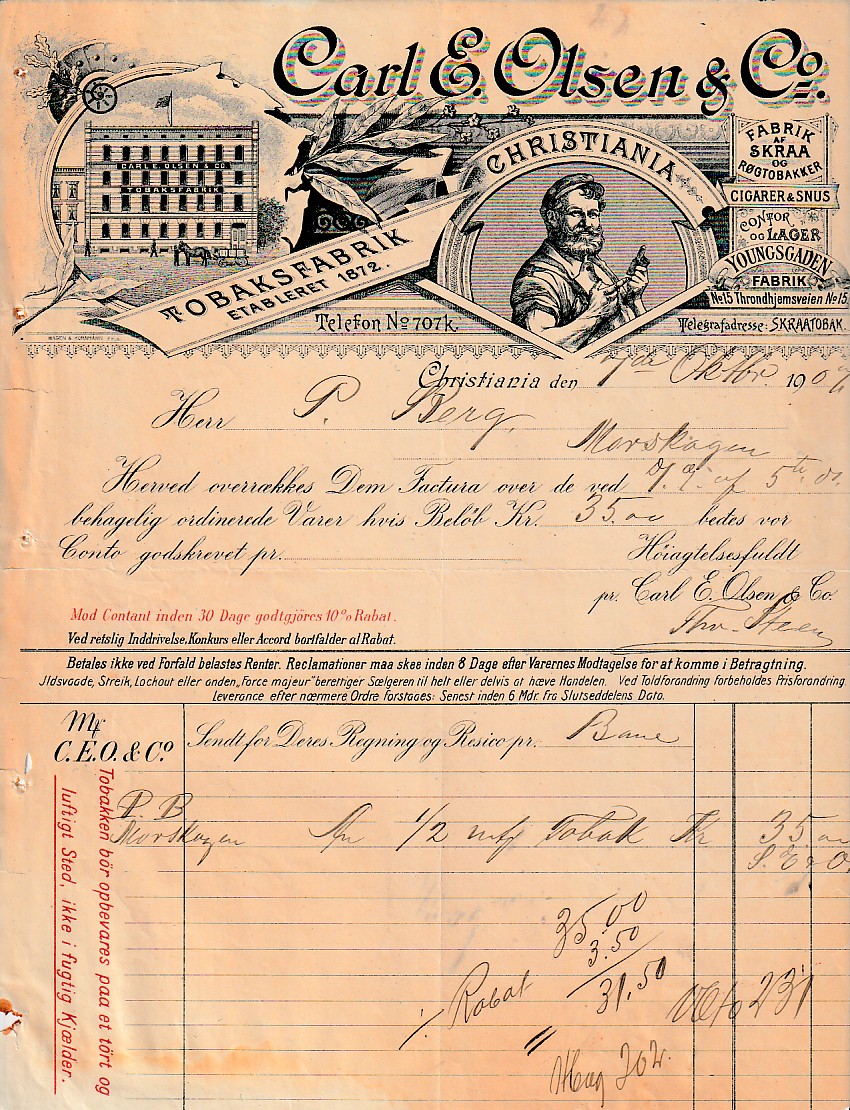 Carl E. Olsen & Co.
CARL E. OLSEN & CO
TOBAKSFABRIK
CHRISTIANIA
FABRIK
AF
SKRAA
OG
RØGTOBAKKER
CIGARER & SNUS
CONTOR
OG LAGER
YOUNGSGADEN
FABRIK
No 15 Throndhjemsveien No 15
TOBAKSFABRIK
ETABLERET 1872.
Telefon No 707k.
Telegrafadresse: SKRAATOBAK
Christiania den 7de Oktbr. 190
Herr P. Berg.
Morskogen
Herved overrækkes Dem Factura over de ved af 5te ds.
behagelig ordinerede Varer hvis Beløb Kr. 35.00 bedes vor
Conto godskrevet pr.
Höiagtelsesfuldt
pr. Carl E. Olsen & Co.
Thv. Steen
Mod Contant inden 30 Dage godtgjöres 10% Rabat.
Ved retslig Inddrivelse, Konkurs eller Accord bortfalder al Rabat.
Betales ikke ved Forfald belastes Renter. Reclamationer maa skee inden 8 Dage efter Varernes Modtagelse for at komme i Betragtning.
Jldsvaade, Streik, Lockout eller anden „Force majeur" berettiger Sælgeren til helt eller delvis at hæve Handelen. Ved Toldforandring forbeholdes Prisforandring.
Leverance efter nærmere Ordre forstaaes: Senest inden 6 Mdr. fra Slutseddelens Dato.
Mf
C. E. O. & Co
Sendt for Deres Regning og Resico pr. Bane
P. B
Morskogen 1/2 Tobak Kr 35.00
S. E & O.
35.00
3.50
÷ Rabat 31,50
231
Tobakken bör opbevares paa et tört og
luftigt Sted, ikke i fugtig Kjælder.